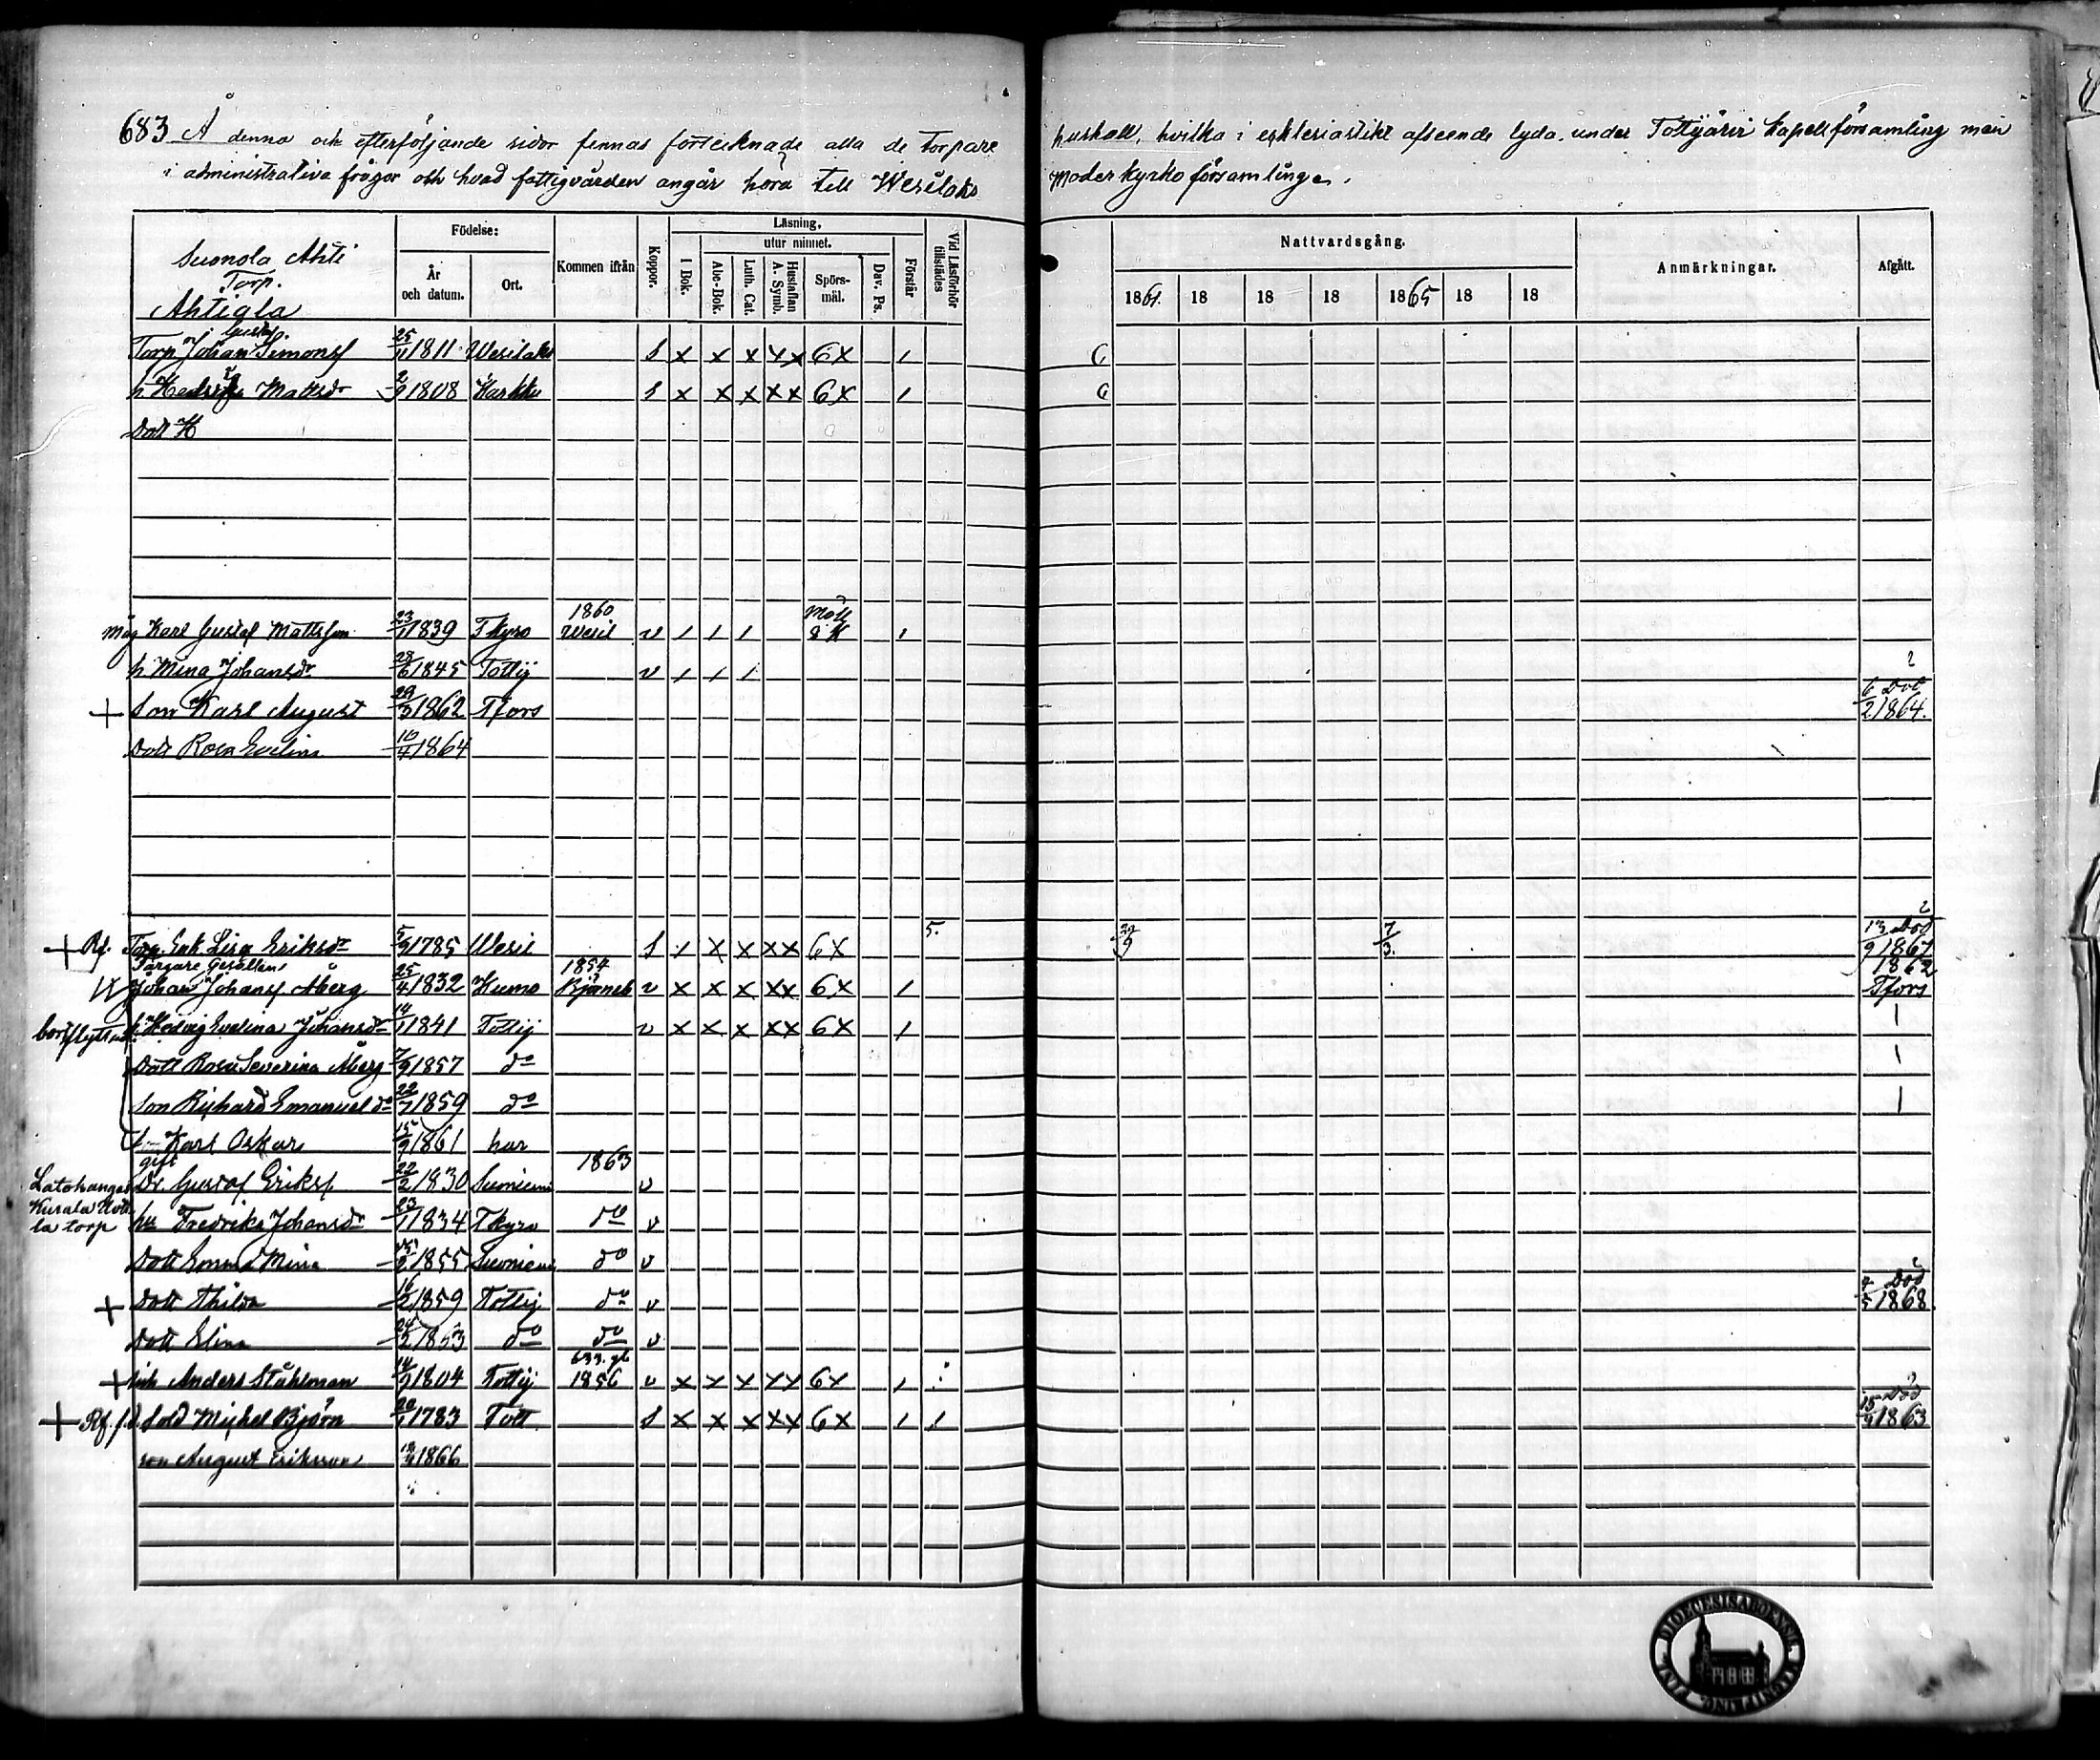 683 Å denna och efterföljande sidor finnas förteiknade alla de Torpare hushåll, hvilka i ecklesiastikt afseende lyda under Tottijärvi kapellförsamling men
i administrativa frågor och hvad fattigvården angår höra till Wesilaks Moderkyrko församlingen.
Suonola Ahti
Torp.
Ahtiala
Födelse:
År och datum.
Ort.
Kommen ifrån
Koppor.
Läsning,
utur minnet.
I Bok.
Abc-Bok.
Luth. Cat.
Hustaflan A. Symb.
Spörs-mål.
Dav. Ps.
Förstår
Vid Läsförhör tillstädes
Nattvardsgång.
1861. 18 18 18 1865 18 18
Anmärkningar.
Afgått.
Gustaf
Torp Johan Simonsf 25/11 1811 Wesilaks s x x x xx 6x 1
h Hedvig Mattsdr 2/9 1808 Karkku s x x x xx 6x 1
Dott H
måg Karl Gustaf Mattsson 23/1 1839 Tkyro 1860 Wesil v 1 1 1
h Mina Johansdr 28/6 1845 Tottij v 1 1 1
+ Son Karl August 1862 Tfors 6/2 Död 1864.
Dott Rosa Evelina 10/4 1864
+ Rf. Torp. Enk. Lisa Eriksdr 5/9 1785 Wesil s 1 x x xx 6x 5. 7/3. 13/9 Död 1867
Färgare Gesällen
Johan Johansf Åberg 25/4 1832 Kumo 1854 Björneb v x x x xx 6x 1 1862 Tfors
bortflyttad h Hedvig Evelina Johansdr 14/1 1841 Tottij v x x x xx 6x 1
Dott Rosa Severina Åberg 7/9 1857 do
Son Richard Emanuel do 22/7 1859 do
Karl Oskar 15/9 1861 här
gift
Dr. Gustaf Eriksf 22/2 1830 Suoniemi 1863 v
la torp hu Fredrika Johansdr 23/1 1834 Tkyro do v
Dott Emma Mina 1855 Suoniemi do v
+ Dott Thilda 16/2 1859 Tottij do v Död 1868.
Dott Elina 24/2 1853 do do v
+ inh Anders Ståhlman 14/ 1804 Tottij 633. gb 1856 v x x x xx 6x 1
+ Rf f.d Sold Michel Björn 20/1 1783 Tott s x x x xx 6x 1 1 15/4 Död 1863
son August Eriksson 1866